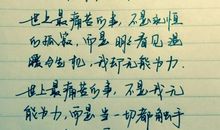 世上最痛苦的事，不是永恒
的孤寂，而是明明看见温
暖与生机，我却无能为力.
世上最痛苦的事，不是我无
能为力，而是当一切都触手